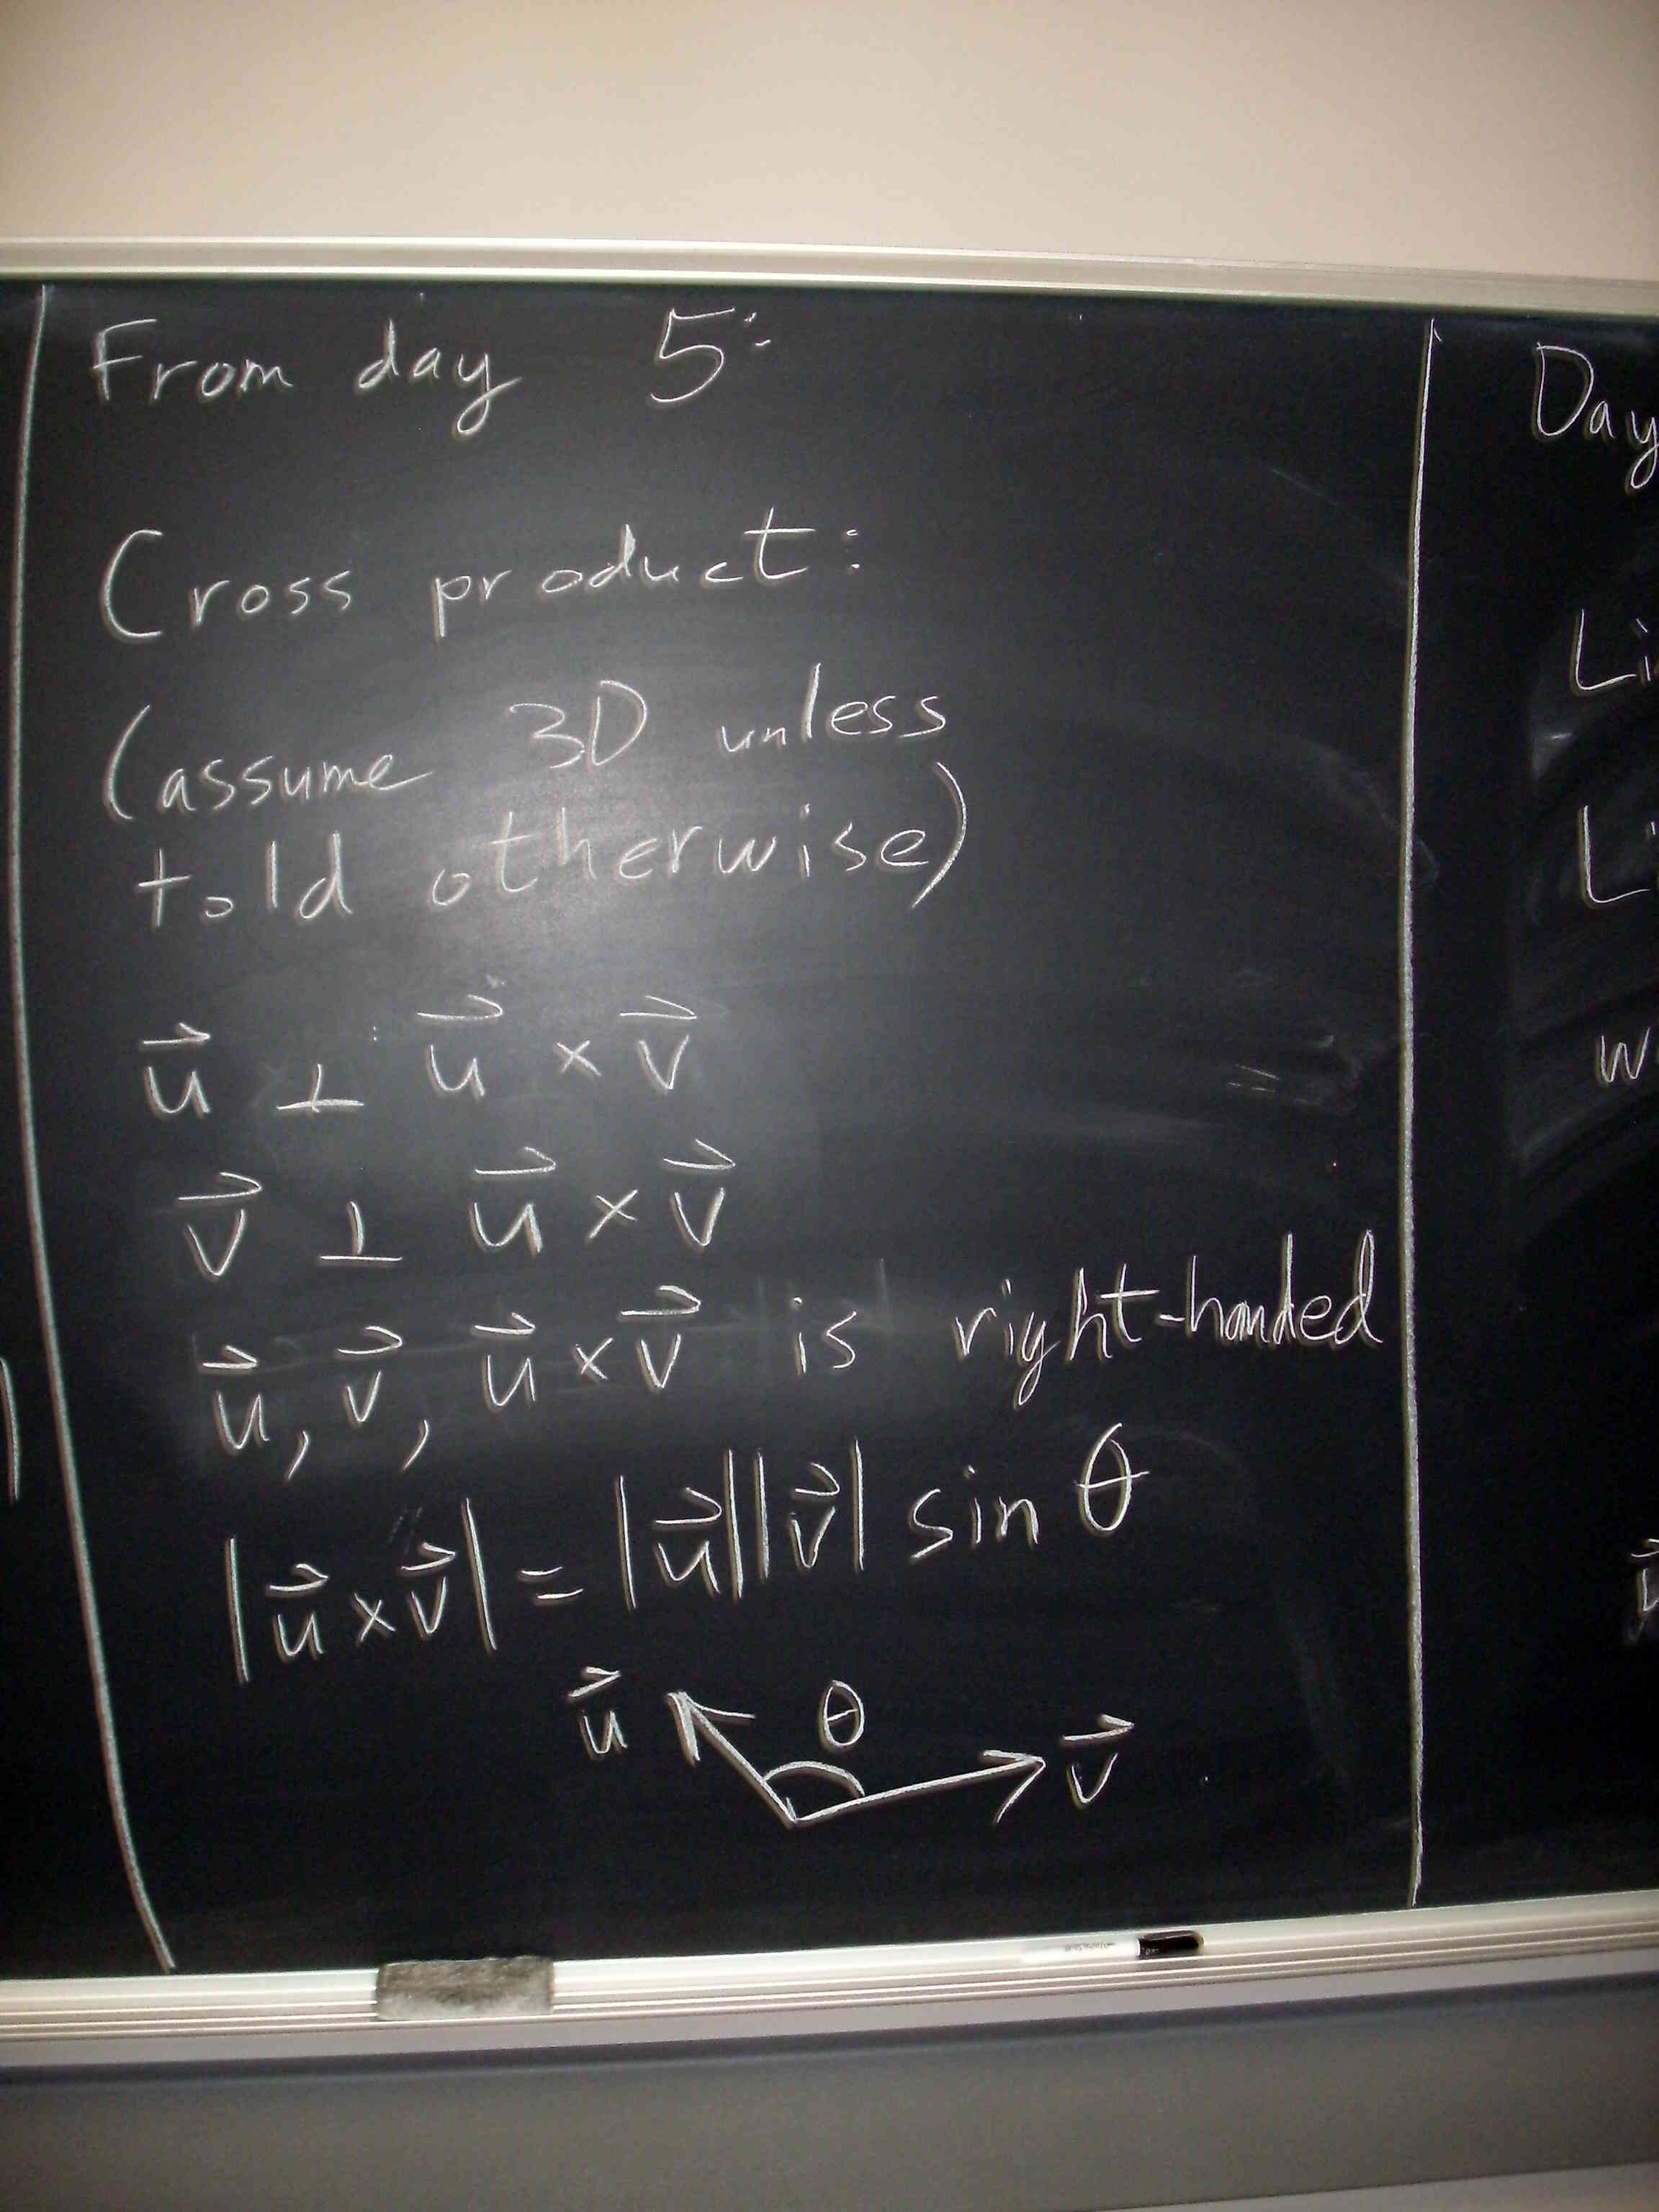 From day 5:
Cross product:
(assume 3D unless
told otherwise)
u⃗ ⊥ u⃗ × v⃗
v⃗ ⊥ u⃗ × v⃗
u⃗, v⃗, u⃗ × v⃗ is right-handed
|u⃗ × v⃗| = |u⃗||v⃗| sin θ
u⃗ θ v⃗
Day